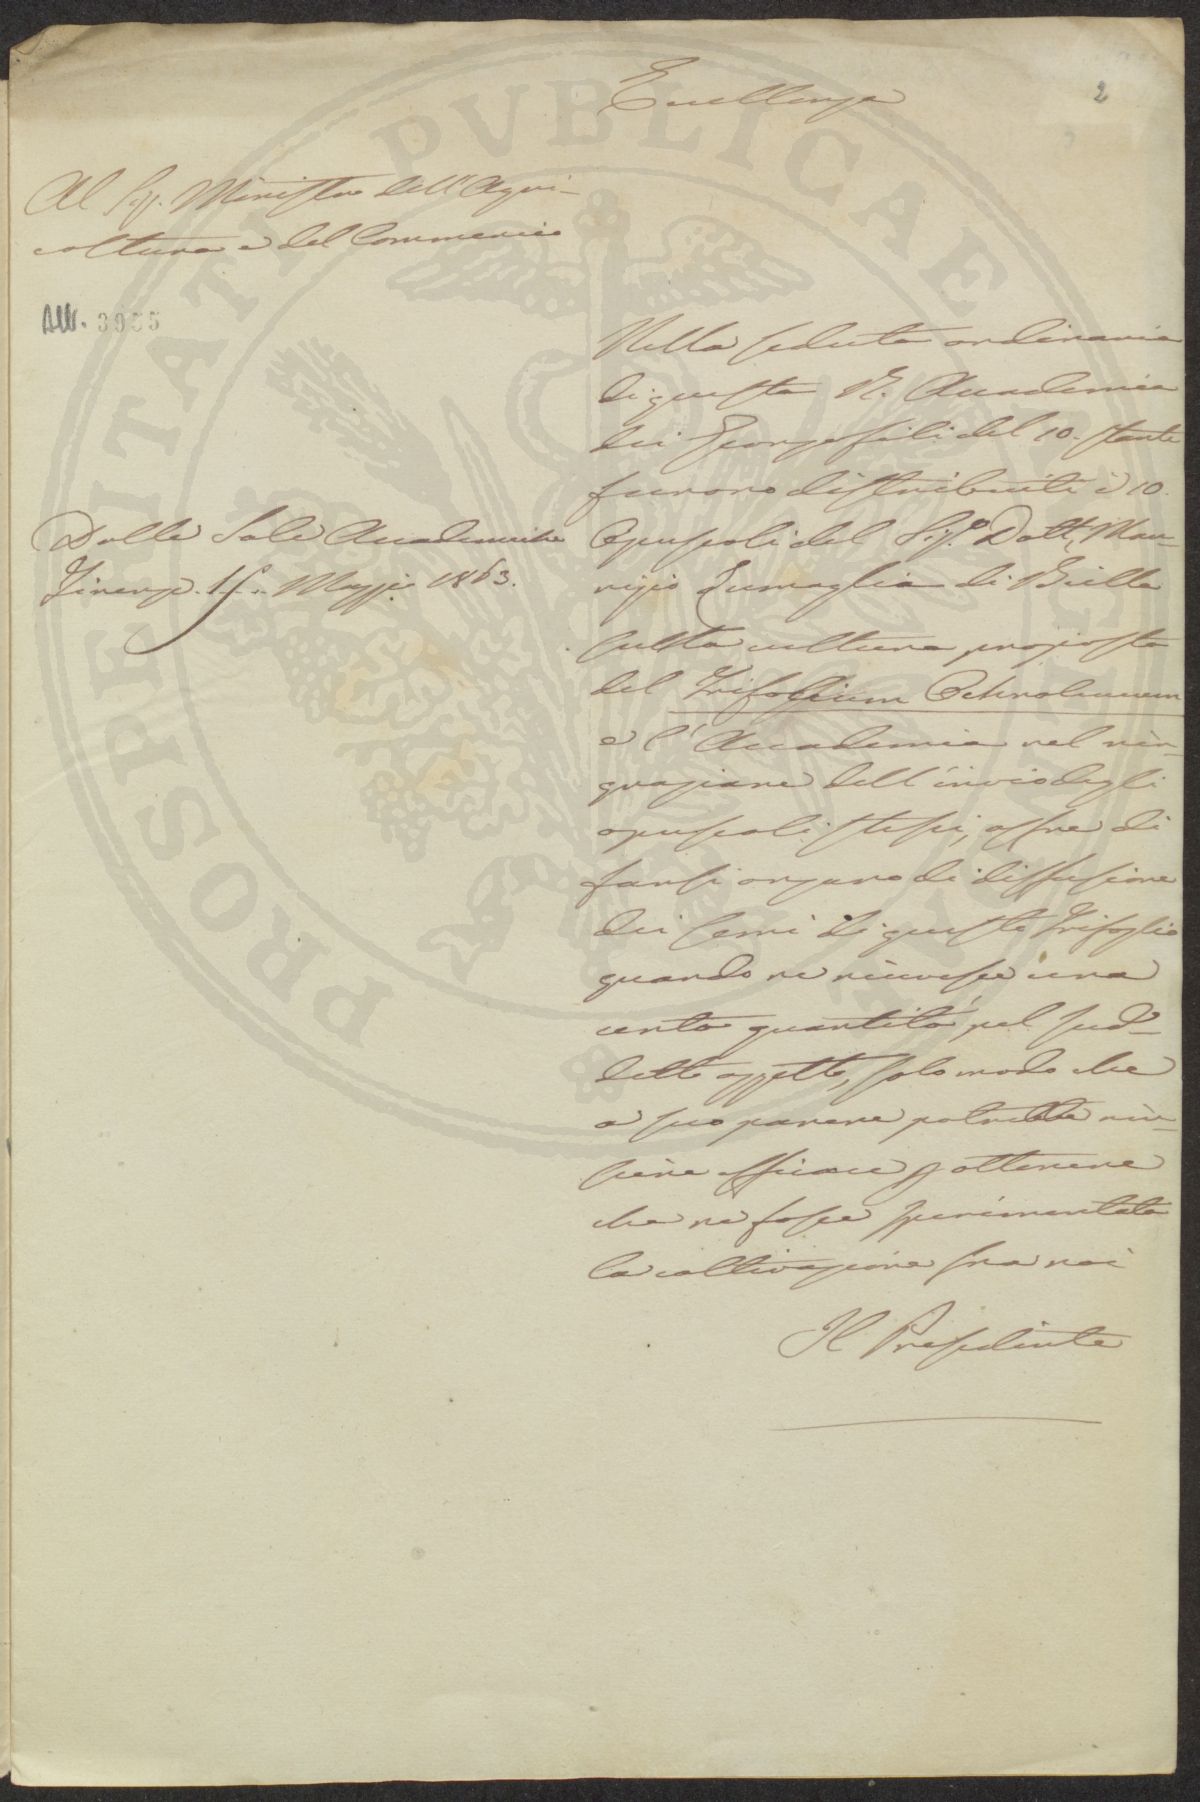 2
Eccellenza
Al Sigr. Ministro dell'Agri-
coltura e del Commercio
AUV. 3955
Dalle Sale Accademiche
Firenze. 15. Maggio 1863.
Nella seduta ordinaria
di questa R. Accademia
dei Georgofili del 10. stante
furono distribuiti i 10.
Opuscoli del Sigr. Dott. Mau-
rizio Zumaglia di Biella
sulla cultura proposta
del Trifolium Ochroleucum
e l'Accademia nel rin-
graziare dell'invio degli
opuscoli stessi, offre di
farsi organo di diffusione
dei semi di questo Trifoglio
quando ne ricevesse una
certa quantità, pel sud-
detto oggetto, solo modo che
a suo parere potrebbe riu-
scire efficace p ottenere
che ne fosse sperimentata
la coltivazione fra noi
Il Presidente
PROSPERITATI PVBLICAE